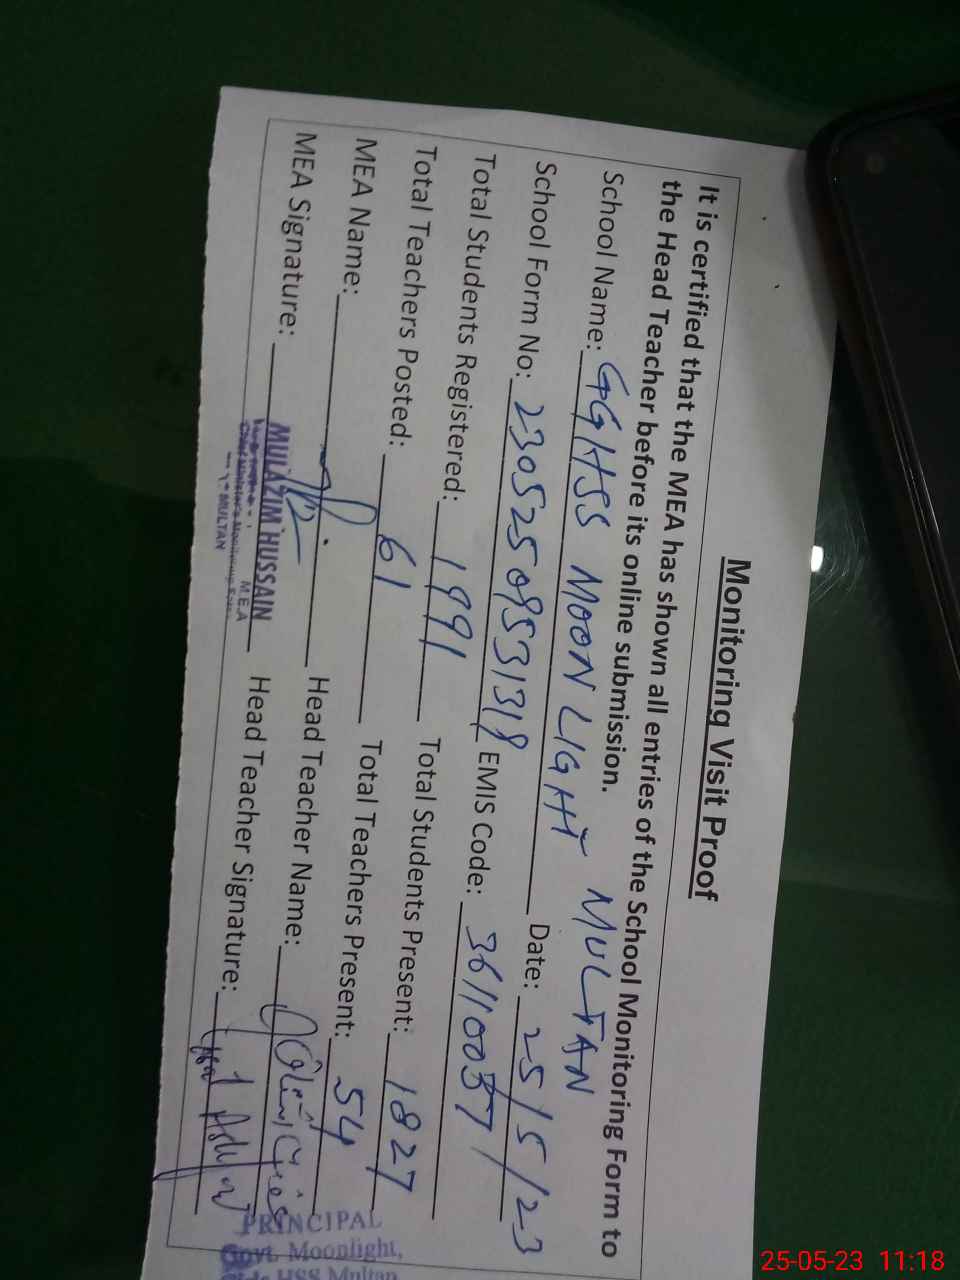 Monitoring Visit Proof
It is certified that the MEA has shown all entries of the School Monitoring Form to
the Head Teacher before its online submission.
School Name: GGHSS MOON LIGHT MULTAN
School Form No: Date: 25/5/23
Total Students Registered: 1991 EMIS Code:
Total Teachers Posted: 61 Total Students Present: 1827
MEA Name: Total Teachers Present: 54
MEA Signature: Head Teacher Name:
MULAZIM HUSSAIN Head Teacher Signature:
M.E.A
MULTAN
PRINCIPAL
Govt. Moonlight,
HSS Multan
25-05-23 11:18